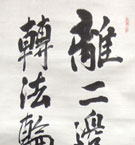 離二邊
轉法輪